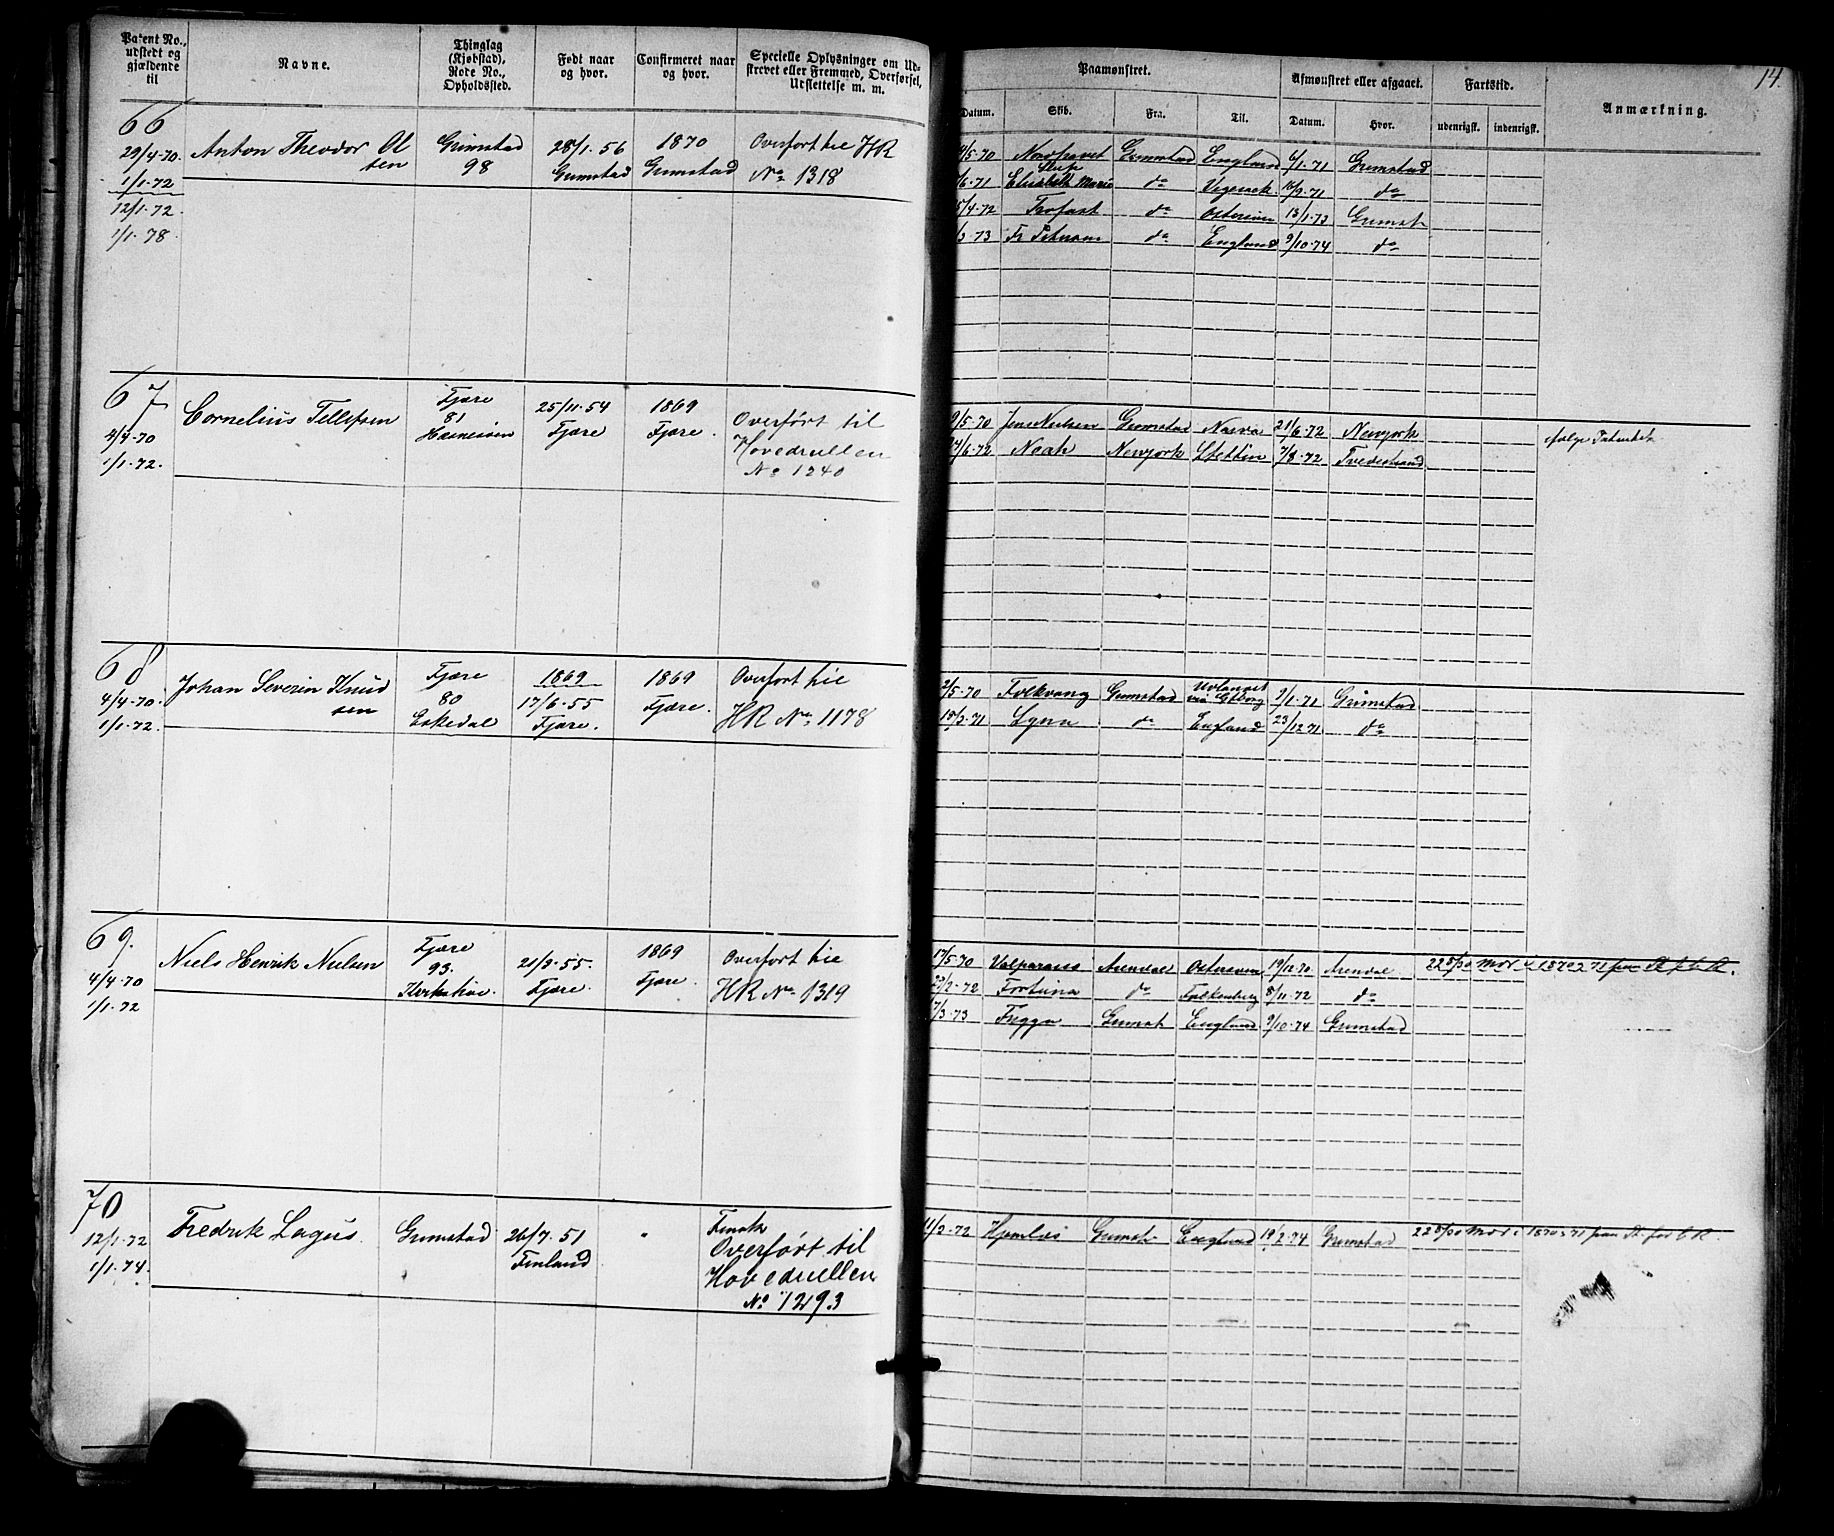 14.
Patent No., udstedt og gjældende til
Navne.
Thinglag (Kjøbstad), Rode No., Opholdssted.
Født naar og hvor.
Confirmeret naar og hvor.
Specielle Oplysninger om Udskrevet eller Fremmed, Overførsel, Udslettelse m. m.
Paamønstret.
Datum.
Skib.
Fra.
Til.
Afmønstret eller afgaaet.
Datum.
Hvor.
Fartstid.
udenrigsk.
indenrigsk.
Anmærkning.
66
29/4-70.
1/1-72
12/1-72.
1/1-78.
Anton Theodor Ol
sen
Grimstad
98
28/1-56
Grimstad
1870
Grimstad
Overført til HR
No 1318
/5-70 Grimstad England /1-71 Grimstad
/6-71 Elisabeth Marie do Vegesack /9-71 do
5/4-72 Trofast do Østersøen 13/1-73 Grimst.
/3-73 do England 9/10-74 do
67
4/4-70
1/1-72.
Cornelius Tellefsen
Fjære
81
25/11-54
Fjære
1869
Fjære.
Overført til
Hovedrullen
No 1240
9/5-70 Jens Nielsen Grimstad Narva 21/6-72 Newjork
/6-72 Noah Newjork Stettin 7/8-72 Tvedestrand
68
4/4-70.
1/1-72.
Johan Severin Knud
sen
Fjære
80
Eskedal
1869
17/6-55
Fjære.
1869
Fjære.
Overført til
HR No 1178
2/5-70 Folkvang Grimstad Udlandet via Gtborg 2/1-71 Grimstad
15/2-71 Lyna do England 23/12-71 do
69.
4/4-70
1/1-72
Niels Henrik Nielsen
Fjære
93.
21/3-55.
Fjære.
1869
Fjære.
Overført til
HR No 1319
17/5-70 Valparaiso Arendal Østersøen 19/12-70 Arendal
/2-72 Fortuna do Falkenberg 8/11-72 do
/3-73 Frigga Grimst. England 9/10-74 Grimstad
70
12/1-72
1/1-74.
Fredrik Lagus.
Grimstad
26/7-51
Finland
"
Finsk
Overført til
Hovedrullen
No 1293
11/2-72 Hjemløs Grimst. England 19/2-74 Grimstad